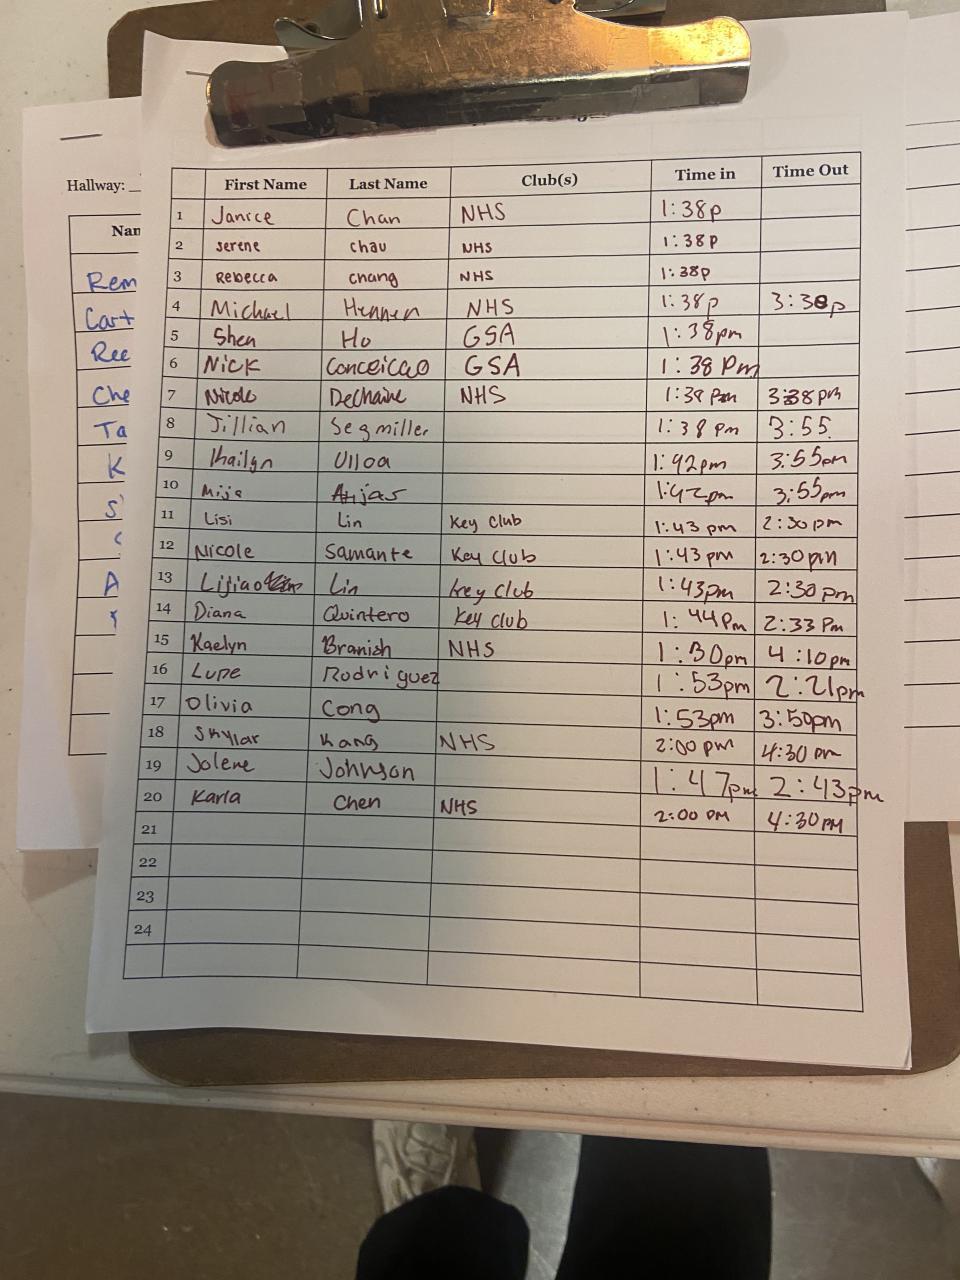 Hallway: _
Nar
Rem
Cart
Ree
Che
Ta
K
S'
A
First Name Last Name Club(s) Time in Time Out
1 Janice Chan NHS 1:38p
2 serene chau NHS 1:38p
3 Rebecca chang NHS 1:38p
4 Michael Hennen NHS 1:38p 3:38p
5 Shea Ho GSA 1:38pm
6 Nick Conceicao GSA 1:38 Pm
7 Nicole Dechaine NHS 1:38 Pm 3:38 pm
8 Jillian Segmiller 1:38 pm 3:55
9 Khailyn Ulloa 1:42pm 3:55pm
10 Mija 1:42pm 3:55pm
11 Lisi Lin Key Club 1:43 pm 2:30 pm
12 Nicole Samante Key Club 1:43 pm 2:30 pm
13 Lijiao Lin key club 1:43pm 2:30 pm
14 Diana Quintero Key club 1:44 Pm 2:33 Pm
15 Kaelyn Branish NHS 1:30pm 4:10pm
16 Lupe Rodriguez 1:53pm 2:21pm
17 Olivia Cong 1:53pm 3:50pm
18 Skyllar Kang NHS 2:00 pm 4:30 pm
19 Jolene Johnson 1:47pm 2:43pm
20 Karla Chen NHS 2:00 PM 4:30 PM
21
22
23
24